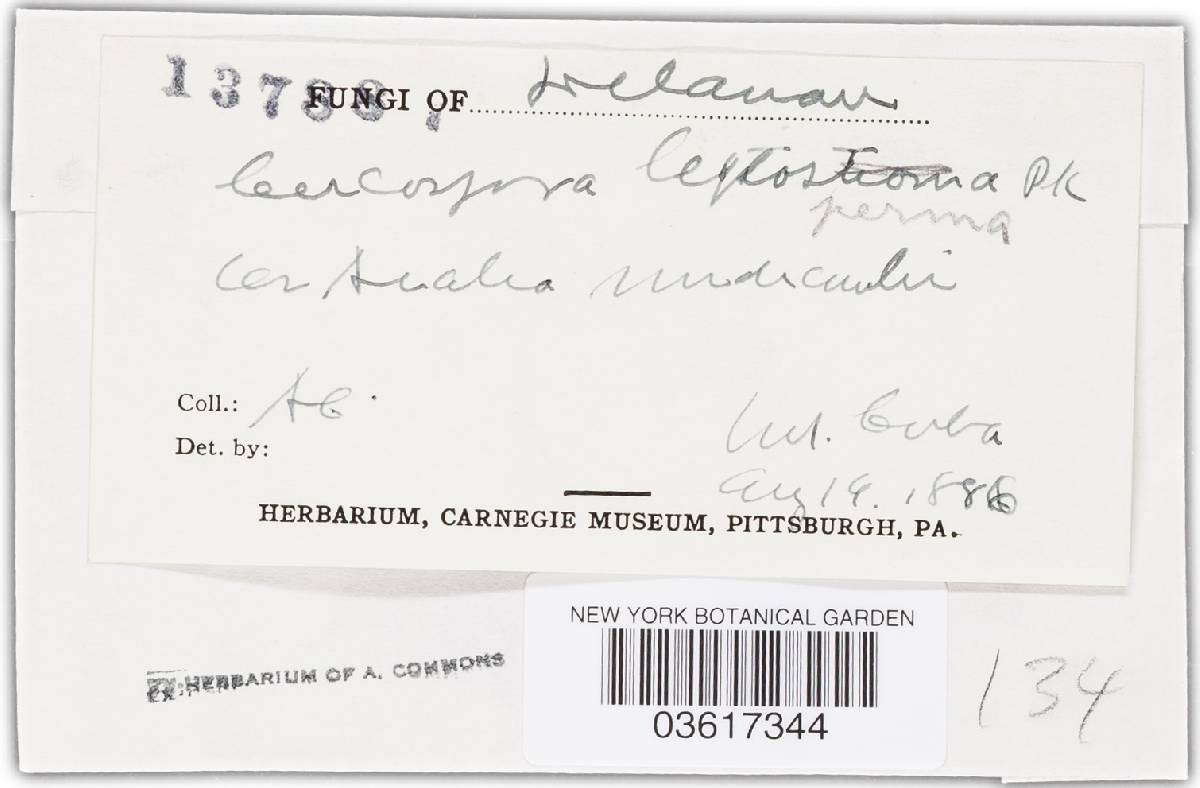 FUNGI OF Delaware
Cercospora leptostroma PK
perma
on Aralia nudicaulis
Coll.: AC.
Mt. Cuba
Det. by:
Aug 19. 1886
HERBARIUM, CARNEGIE MUSEUM, PITTSBURGH, PA.
NEW YORK BOTANICAL GARDEN
EX: HERBARIUM OF A. COMMONS
03617344
134